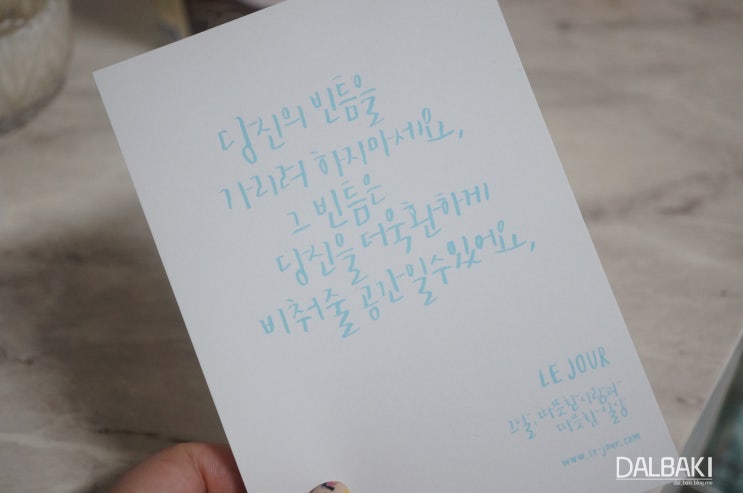 당신의 빈틈을
가리려 하지마세요,
그 빈틈은
당신을 더욱 환하게
비춰줄 공간일수있어요,
LE JOUR
그날, 따뜻한 사람과
따뜻한 일상
www.le-jour.com
DALBAKI
dal_baki.blog.me